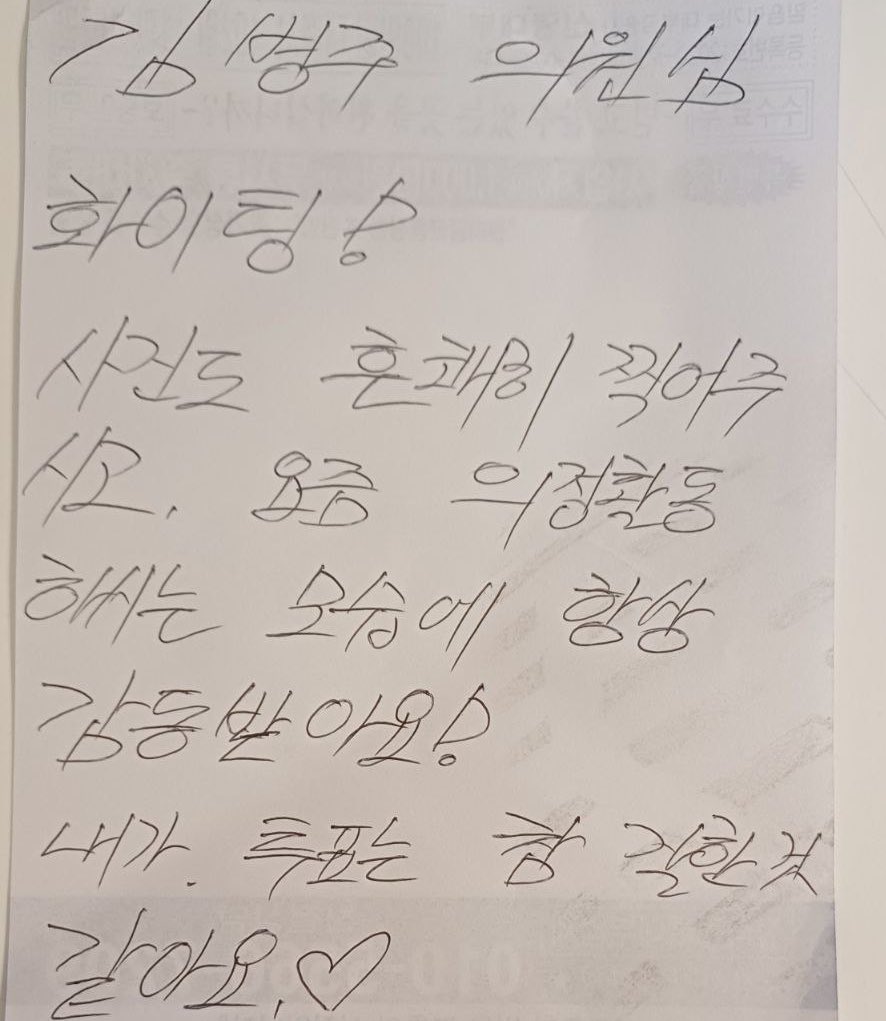 김병주 의원님
화이팅!
사진도 흔쾌히 찍어주
시고. 요즘 의정활동
하시는 모습에 항상
감동받아요!
내가. 투표는 참 잘한 것
같아요.♡